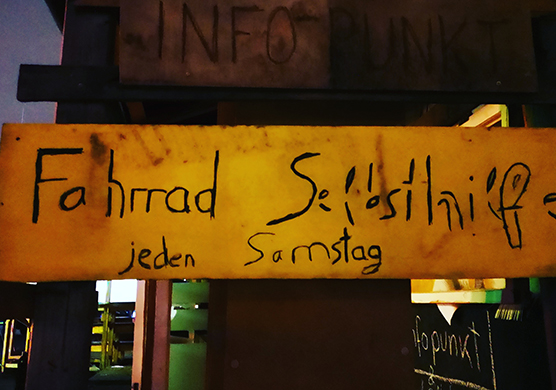 INFO PUNKT
Fahrrad Selbsthilfe
jeden Samstag
nfopunkt